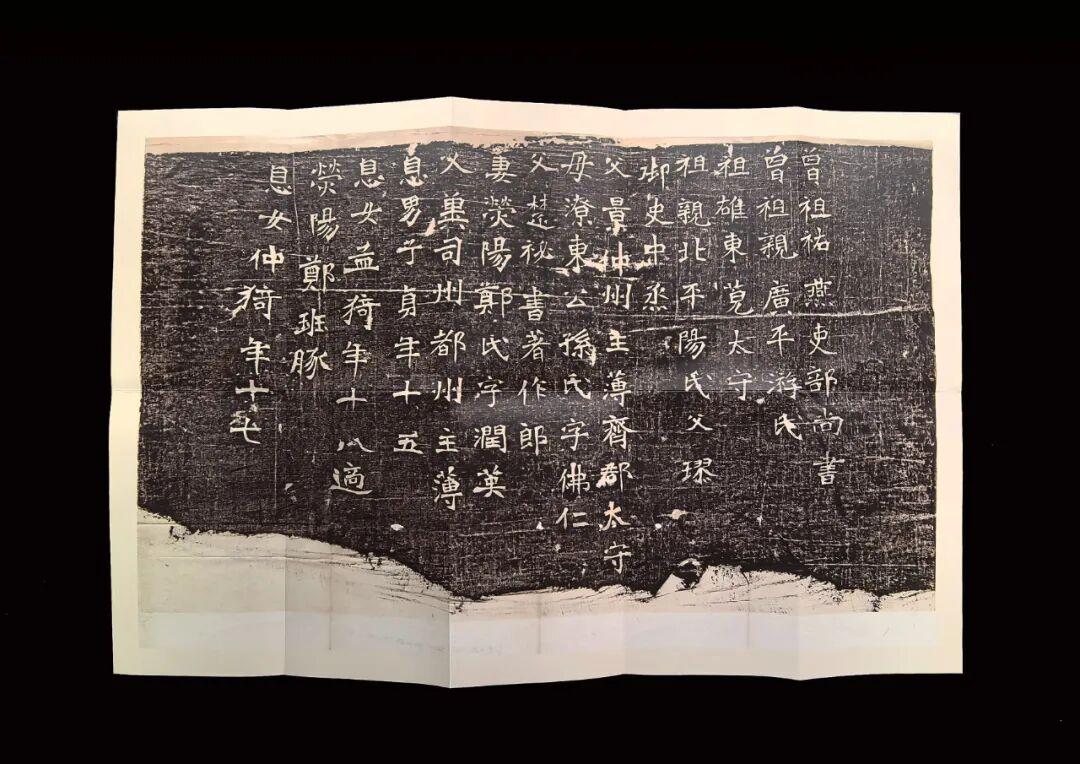 曾祖祐燕吏部尚書
曾祖親廣平游氏
祖雄東莞太守
祖親北平陽氏父璆
御史中丞
父景仲州主薄齊郡太守
母潦東公孫氏字佛仁
父楚祕書著作郎
妻熒陽鄭氏字潤英
父巢司州都州主薄
息男子貞年十五
息女孟猗年十八適
熒陽鄭班豚
息女仲猗年十七